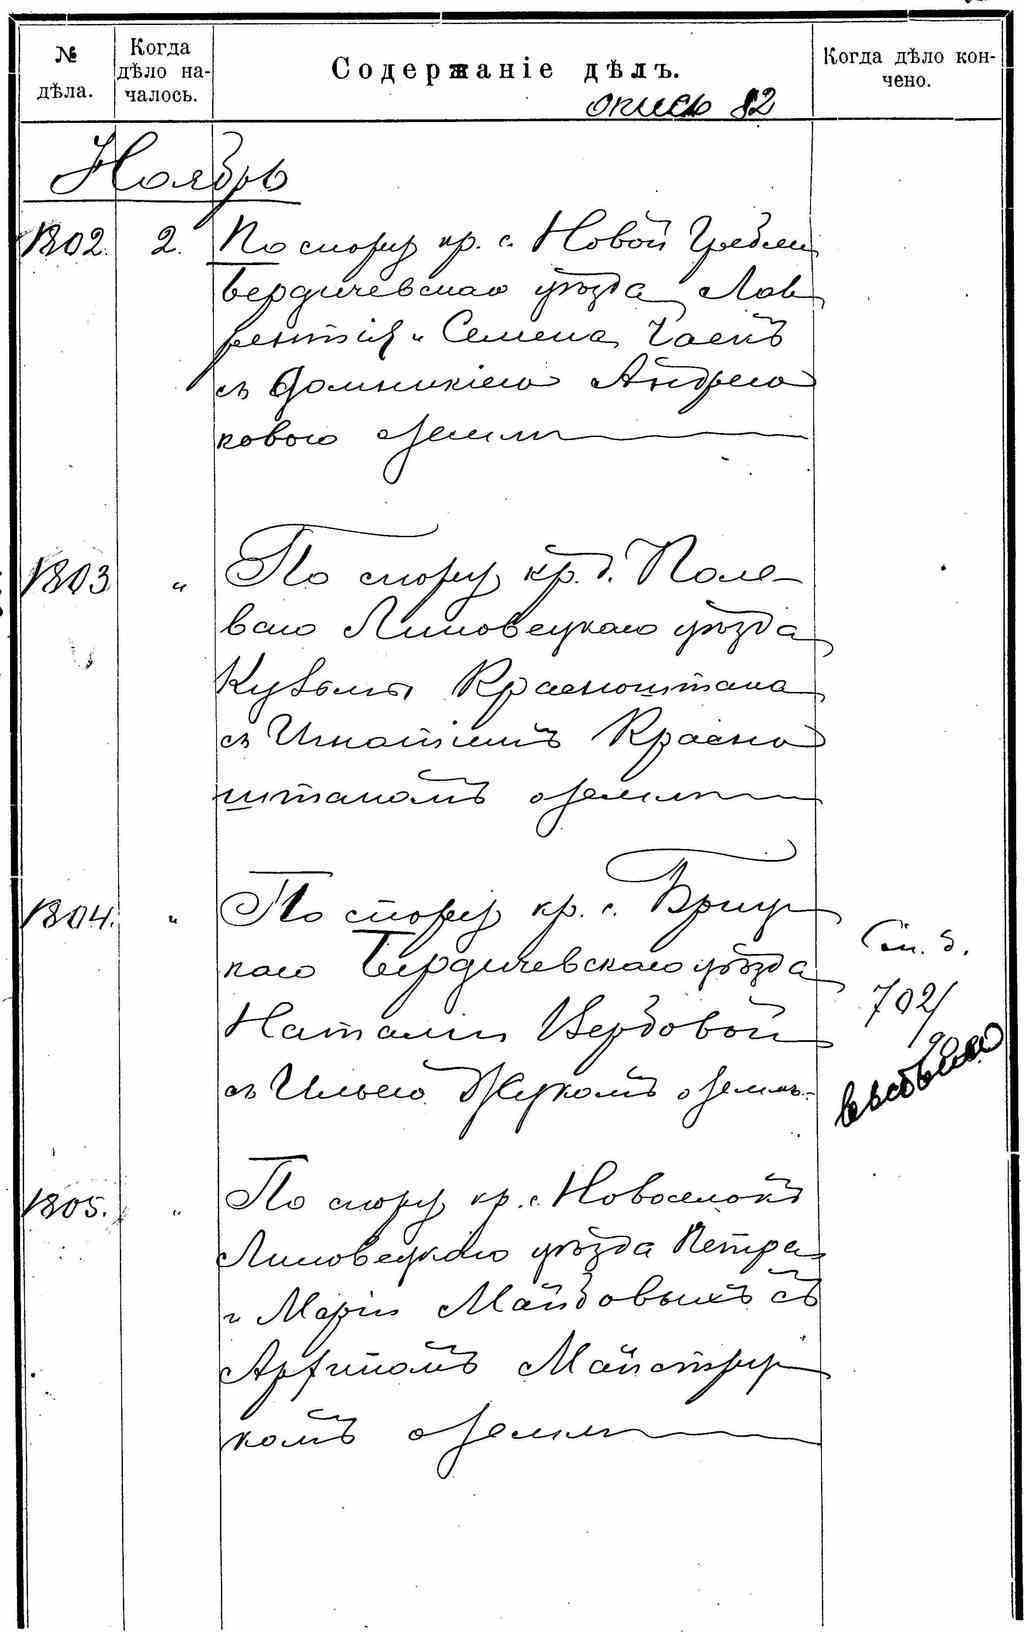 № дѣла.
Когда дѣло на-
чалось.
Содержаніе дѣлъ.
Когда дѣло кон-
чено.
опись 82
Ноябрь
1802. 2. По спору кр. с. Новой Гребли
Бердичевскаго уѣзда Лав
рентія и Семена Чаекъ
съ Домникіею Андрею
ковою о землѣ
1803 " По спору кр. д. Поле-
ваго Липовецкаго уѣзда
Кузьмы Красноштана
съ Игнатіемъ Красно
штаномъ о землѣ
1804. " По спору кр. с. Бриц
каго Бердичевскаго уѣзда
Наталіи Вербовой
съ Ильею Жукомъ о землѣ.
См. д.
702/
выбыло
1805. " По спору кр. с. Новоселокъ
Липовецкаго уѣзда Петра
и Маріи Майдовыхъ съ
Архипомъ Майстру
комъ о землѣ